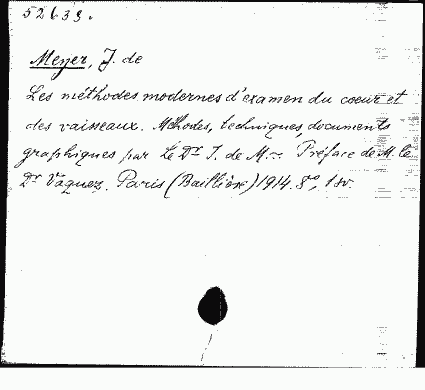 52639.
Meyer, J. de
Les méthodes modernes d'examen du coeur et
des vaisseaux. Méthodes, techniques, documents
graphiques par le Dr J. de M~ Préface de M. le
Dr Vaquez. Paris (Baillière) 1914. 8°, 1 v.